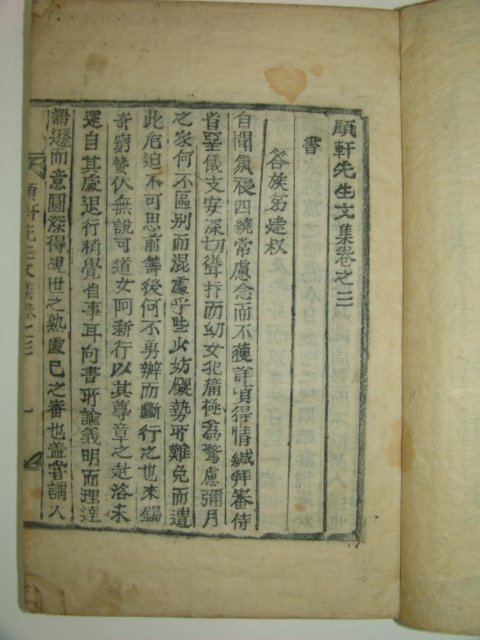 頋軒先生文集卷之二
書
答族弟建奴
自聞氛祲四繞常慮念而不獲詳頃得情緘拜審侍
省堂儀支安深切聳抃而幼女犯痛極爲驚慮彌月
之家何不區別而混處乎些少妨礙勢所難免而遭
此危迫不可思前籌後何不勇辦而斷行之也來錫
奇窮蟄伏無說可道女阿新行以其尊章之赴洛未
還自其處退行稍覺省事耳向書所諭義明而理達
語遜而意圓深得覘世之熟處己之審也盖嘗謂人
先生文集卷之二